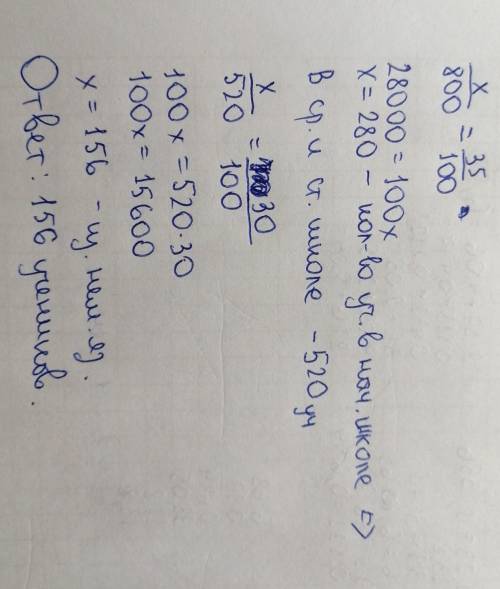 x/800 = 35/100
28000 = 100x
x = 280 - кол-во уч. в нач. школе =>
В ср. и ст. школе - 520 уч
x/520 = 30/100
100x = 520·30
100x = 15600
x = 156 - из. нем. яз.
Ответ: 156 учеников.